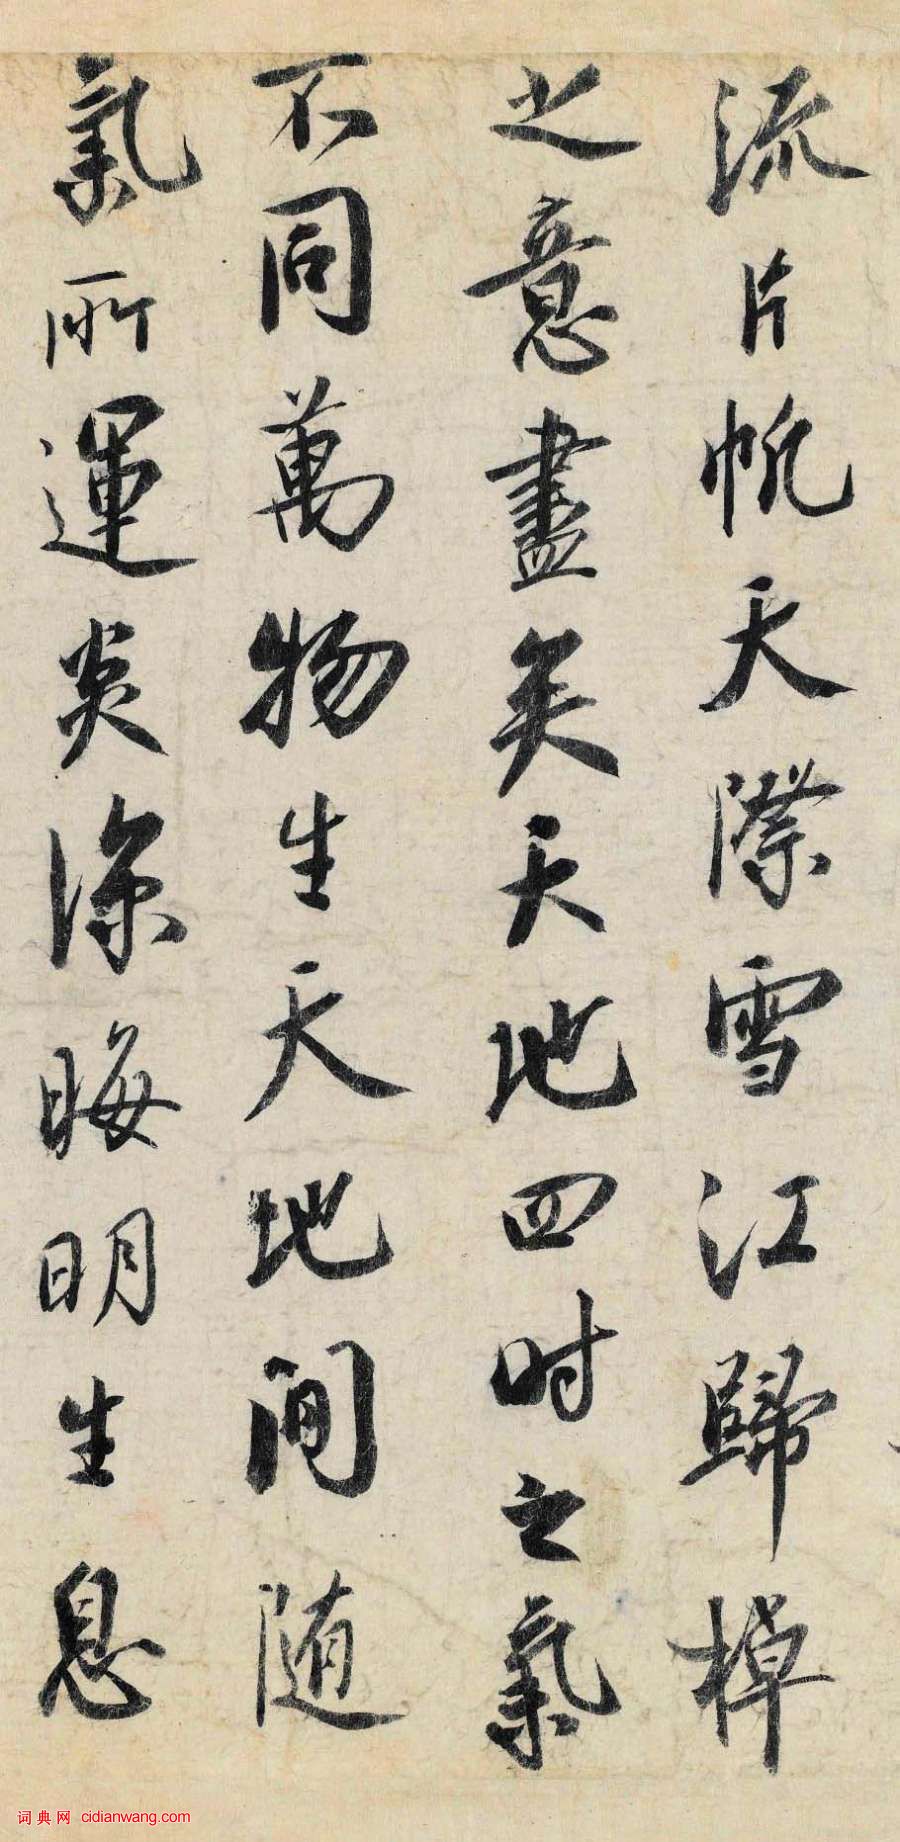 流片帆天際雪江歸棹
之意盡矣天地四时之氣
不同萬物生天地間随
氣所運炎涼晦明生息
词典网 cidianwang.com